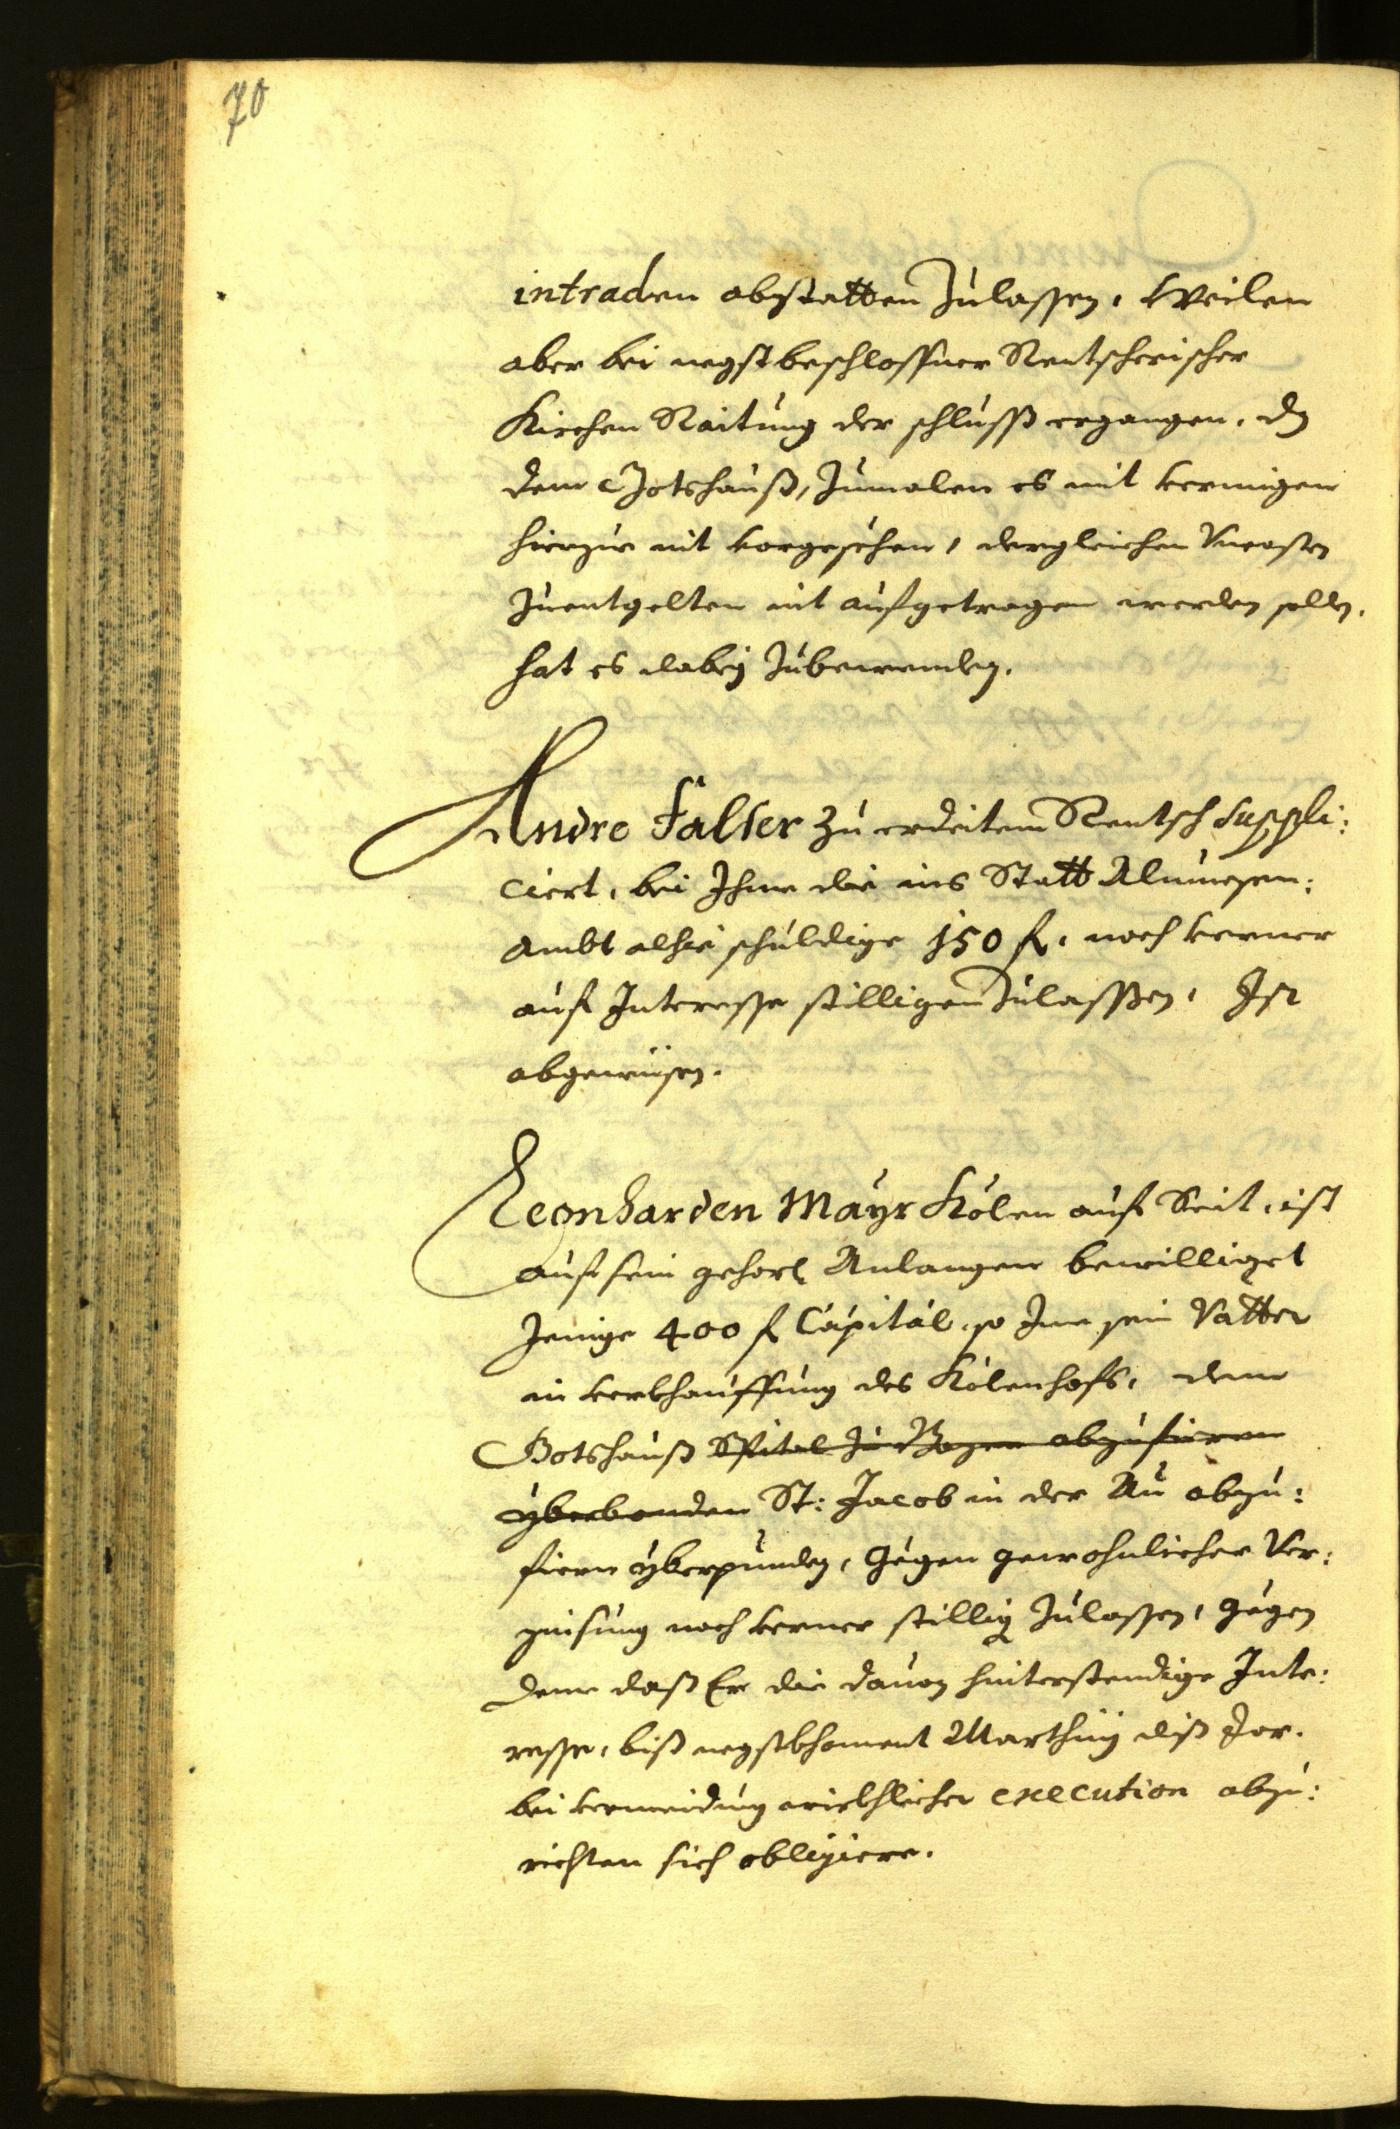 70
intraden abstatten zulassen, Weilen
aber bei negst beschlossner Rentscherischer
Kirchen Raitung der schlusß ergangen, dz
dem Gotshauß, zumalen es mit vermigen
hierzue nit vorgesehen, dergleichen Vncosten
zuentgelten nit aufgetragen werden solle,
hat es dabey zubewenden.
Andre Falser zu erdeitem Rentsch suppli:
ciert, bei Ihme die ins Statt Almuesen:
Ambt alhie schuldige 150 fl. noch verner
auf Interesse stilligen zulasßen, Ist
abgewisen.
Leonharden Mayr Kölen auf Seit, ist
auf sein gehors. Anlangen bewilliget
Jenige 400 fl Capital, so Ime sein Vatter
in verkhauffung des Kölenhofs, dem
Gotshauß Spital zu Bozen abzufieren
yberbonden St: Jacob in der Au abzu:
fiern yberpunden, gegen gewohnlicher Ver:
zinsung noch verner stillig zulassen, gegen
deme daß Er die dauon hinterstendige Inte:
resse, biß negstkhoment Marthiny diß Jar.
bei vermeidung wirkhlicher execution abzu:
richten sich obligiere.